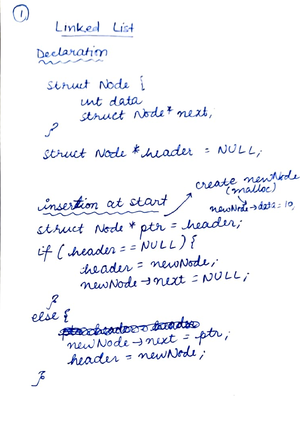 1
Linked List
Declaration
struct Node {
int data
struct Node* next;
}
struct Node *header = NULL;
insertion at start
create newNode
(malloc)
newNode→data = 10;
struct Node * ptr = header;
if (header == NULL) {
header = newNode;
newNode→next = NULL;
}
else {
newNode→next = ptr;
header = newNode;
}